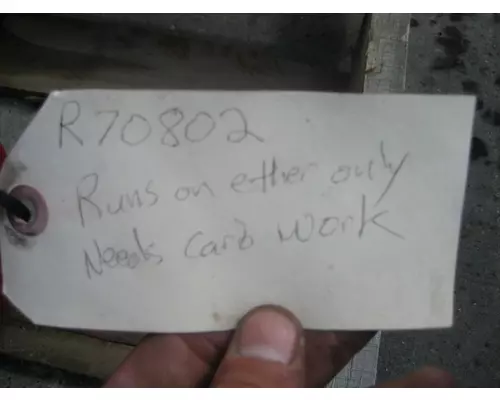 R70802
Runs on ether only
Needs Carb work